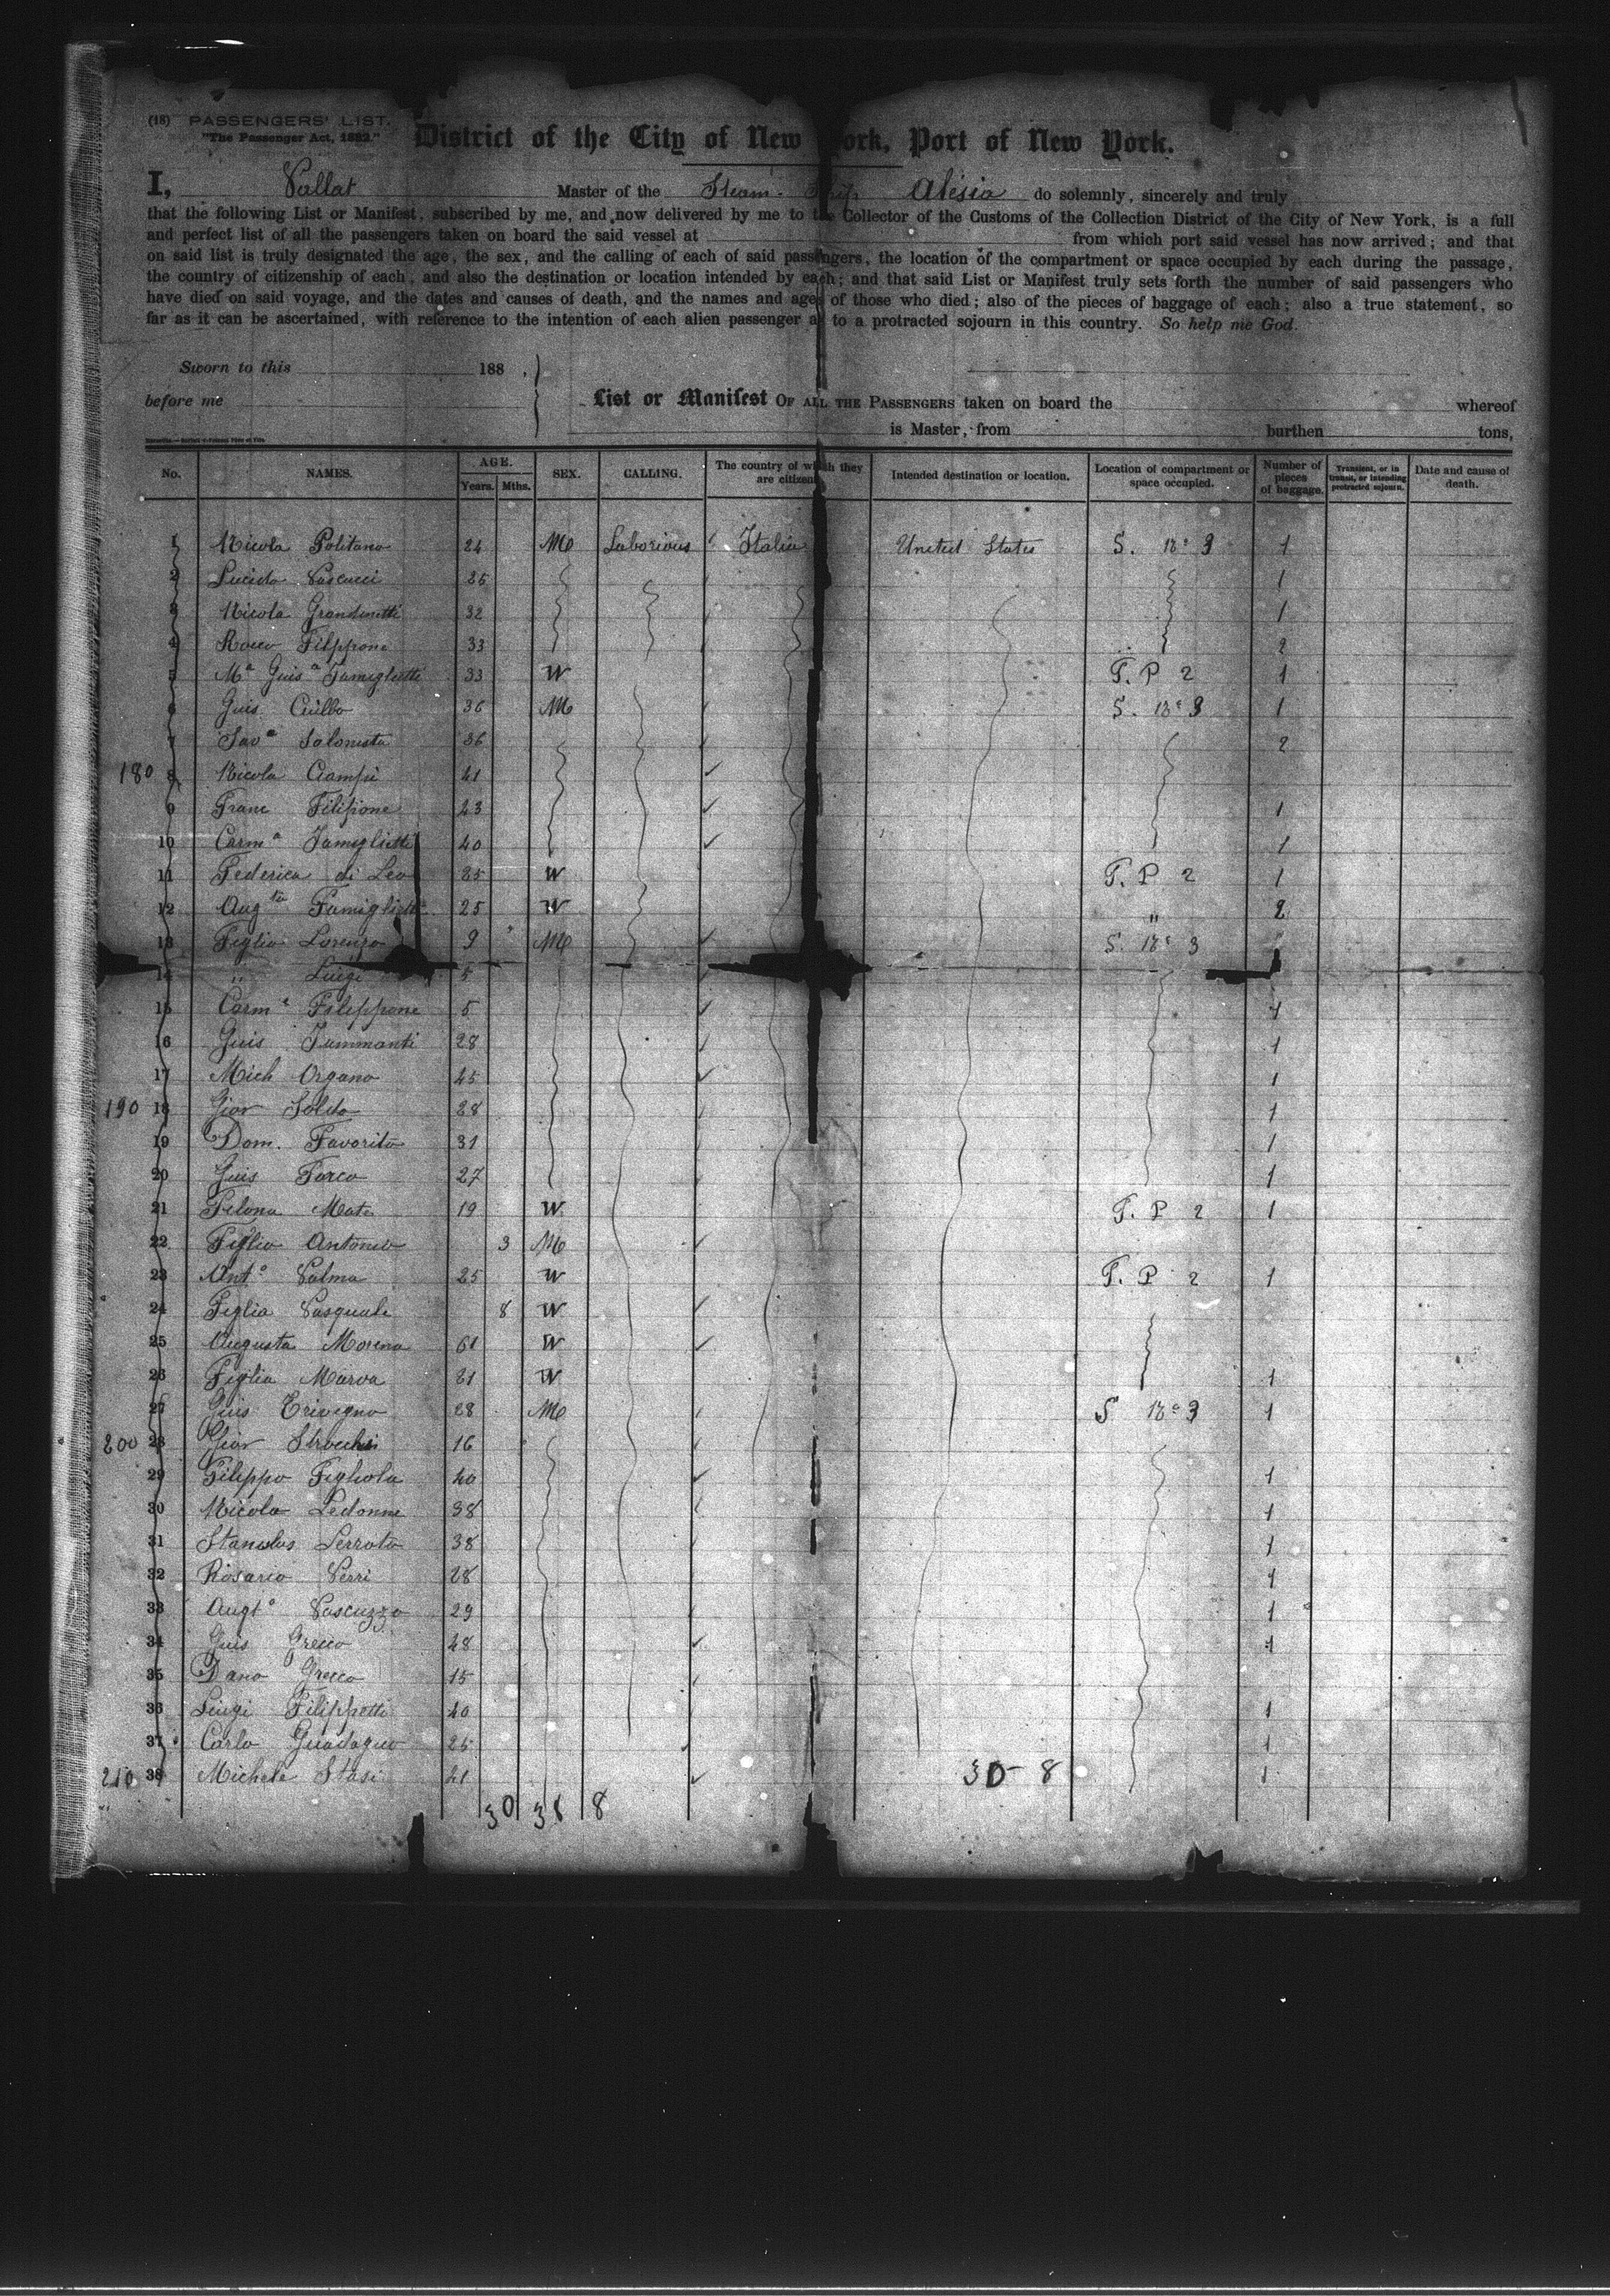 (18) PASSENGERS' LIST.
"The Passenger Act, 1882."
District of the City of New York, Port of New York.
I, Vallat Master of the Steam Ship Alesia do solemnly, sincerely and truly
that the following List or Manifest, subscribed by me, and now delivered by me to the Collector of the Customs of the Collection District of the City of New York, is a full
and perfect list of all the passengers taken on board the said vessel at from which port said vessel has now arrived; and that
on said list is truly designated the age, the sex, and the calling of each of said passengers, the location of the compartment or space occupied by each during the passage,
the country of citizenship of each, and also the destination or location intended by each; and that said List or Manifest truly sets forth the number of said passengers who
have died on said voyage, and the dates and causes of death, and the names and ages of those who died; also of the pieces of baggage of each; also a true statement, so
far as it can be ascertained, with reference to the intention of each alien passenger as to a protracted sojourn in this country. So help me God.
Sworn to this 188 .
before me
List or Manifest OF ALL THE PASSENGERS taken on board the whereof
is Master, from burthen tons,
No. NAMES. AGE. Years. Mths. SEX. CALLING. The country of which they are citizens Intended destination or location. Location of compartment or space occupied. Number of pieces of baggage. Transient, or in transit, or intending protracted sojourn. Date and cause of death.
1 Nicola Politano 24 M Laborious Italia United States S. No 3 1
2 Lucido Pascucci 25 1
3 Nicola Grandinetti 32 1
4 Rocco Filippone 33 2
5 Ma Guisa Famiglietti 33 W T. P 2 1
6 Guis Ciullo 36 M S. No 3 1
7 Sava Salonista 36 2
180 8 Nicola Ciampi 41
9 Franc Filippone 23 1
10 Carma Famiglietti 40 1
11 Federica di Leo 25 W T. P 2 1
12 Aug Famiglietti 25 W " 2
13 Figlio Lorenzo 9 M S. No 3
14 " Luigi 5
15 Carma Filippone 5 1
16 Guis Tummanti 28 1
17 Mich Organo 45 1
190 18 Giov Soldo 28 1
19 Dom. Favorito 31 1
20 Guis Forco 27 1
21 Filona Mata 19 W T. P 2 1
22 Figlio Antonio 3 M
23 Anto Palma 25 W T. P 2 1
24 Figlia Pasquale 8 W
25 Augusta Morena 61 W
26 Figlia Marva 21 W 1
27 Guis Trivigno 28 M S No 3 1
200 28 Giov Strocchi 16
29 Filippo Figliola 40 1
30 Nicola Ledonne 38 1
31 Stanislas Perrota 38 1
32 Rosario Perri 28 1
33 Augto Pascuzzo 29 1
34 Guis Grecco 48 1
35 Dano Grecco 15
36 Luigi Filippetti 40 1
37 Carlo Guadagno 25 1
210 38 Michele Stasi 41 1
30 - 8
30 38 8